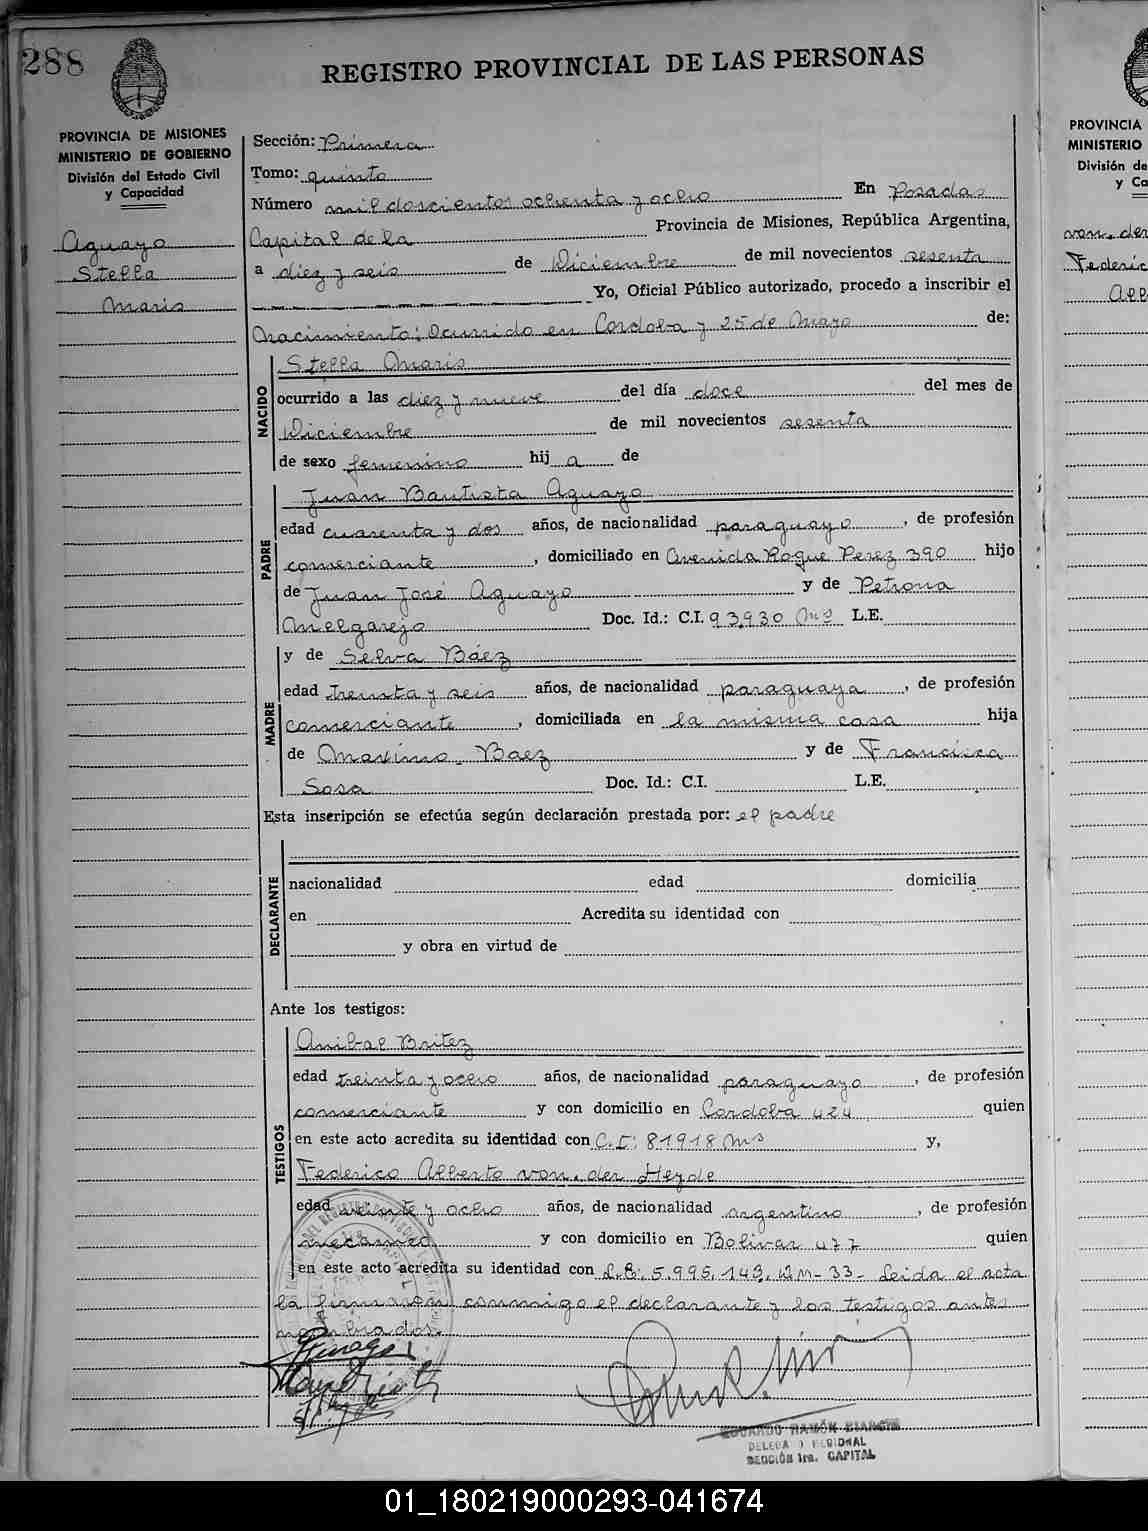 288
REGISTRO PROVINCIAL DE LAS PERSONAS
PROVINCIA DE MISIONES
MINISTERIO DE GOBIERNO
División del Estado Civil
y Capacidad
Aguayo
Stella
Maris
Sección: Primera
Tomo: quinto
Número mil doscientos ochenta y ocho En Posadas
Capital de la Provincia de Misiones, República Argentina,
a diez y seis de Diciembre de mil novecientos sesenta
Yo, Oficial Público autorizado, procedo a inscribir el
Nacimiento: Ocurrido en Cordoba y 25 de Mayo de:
NACIDO
Stella Maris
ocurrido a las diez y nueve del día doce del mes de
Diciembre de mil novecientos sesenta
de sexo femenino hij a de
PADRE
Juan Bautista Aguayo
edad cuarenta y dos años, de nacionalidad paraguayo, de profesión
comerciante, domiciliado en Avenida Roque Perez 390 hijo
de Juan José Aguayo y de Petrona
Melgarejo Doc. Id.: C.I. 93.930 Ms L.E.
MADRE
y de Selva Báez
edad treinta y seis años, de nacionalidad paraguaya, de profesión
comerciante, domiciliada en la misma casa hija
de Maximo Baez y de Francisca
Sosa Doc. Id.: C.I. L.E.
Esta inscripción se efectúa según declaración prestada por: el padre
DECLARANTE
nacionalidad edad domicilia
en Acredita su identidad con
y obra en virtud de
Ante los testigos:
TESTIGOS
Anibal Britez
edad treinta y ocho años, de nacionalidad paraguayo, de profesión
comerciante y con domicilio en Cordoba 424 quien
en este acto acredita su identidad con C.I: 81918 Ms y,
Federico Alberto von der Heyde
edad veinte y ocho años, de nacionalidad argentino, de profesión
mecanico y con domicilio en Bolivar 477 quien
en este acto acredita su identidad con L.E: 5.995.143. DM-33- Leida el acta
la firmaron conmigo el declarante y los testigos antes
nombrados.
EDUARDO RAMÓN BIANCHI
DELEGADO REGIONAL
SECCIÓN 1ra. CAPITAL
PROVINCIA
MINISTERIO
División de
y Ca
von der
Federic
Alb
01_180219000293-041674